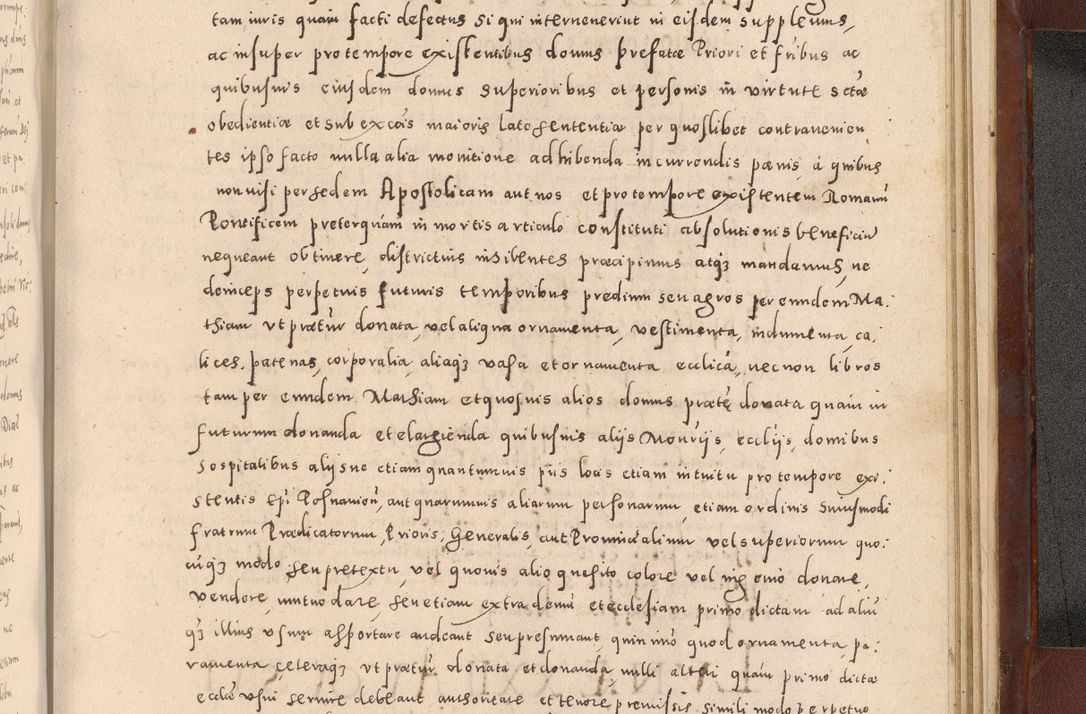 tam iuris quam facti defectus si qui interuenerint in eisdem supplemus,
ac insuper pro tempore existentibus domus prefatæ Priori et fribus ac
quibusuis eiusdem domus superioribus et personis in virtute sctæ
obedientiæ et sub excois maioris late sententiæ per quoslibet contrauenien
tes ipso facto nulla alia monitione adhibenda incurrendis pænis, á quibus
non nisi per sedem Apostolicam aut nos et pro tempore existentem Romanu
Pontificem preterquam in mortis articulo constituti absolutionis beneficiu
nequeant obtinere, districtius inhibentes præcipimus atq3 mandamus, ne
deinceps perpetuis futuris temporibus predium seu agros per eundem Ma:
thiam vt prætur donata, vel aliqua ornamenta, vestimenta, indumenta, ca:
lices, patenas, corporalia, aliaq3 vasa et ornamenta ecclica, necnon libros
tam per eundem Mathiam et quosuis alios domus præte donata quam in
futurum donanda et elargienda quibusuis alijs Monrijs, eccliis, domibus
Hospitalibus alijsue etiam quantumuis piis locis etiam intuitu pro tempore exi:
stentis Epi Posnanien, aut quarumuis aliarum personarum, etiam ordinis huiusmodi
fratrum Prædicatorum, Prioris, Generalis, aut Prouincialium vel superiorum quo:
cuq3 modo seu pretextu, vel quouis alio quesito colore vel ing enio donare,
vendere, mutuo dare, seu etiam extra demu et ecclesiam primo dictam ad aliu
q3 illius vsum asportare audeant seu presumant, quin imo quod ornamenta, pa:
ramenta, ceteraq3 vt prætur donata et donanda, nulli alteri quam primo dictæ
ecclæ vsui seruire debeant authoritate et tenore premissis simili modo perpetuo